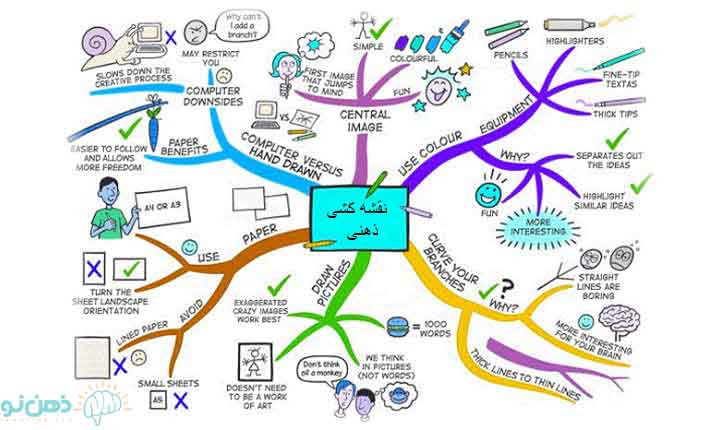 نقشه کشی
ذهنی
CENTRAL
IMAGE
SIMPLE
COLOURFUL
FUN
FIRST IMAGE
THAT JUMPS
TO MIND
USE COLOUR
EQUIPMENT
PENCILS
HIGHLIGHTERS
FINE-TIP
TEXTAS
THICK TIPS
WHY?
SEPARATES OUT
THE IDEAS
HIGHLIGHT
SIMILAR IDEAS
FUN
MORE
INTERESTING
CURVE YOUR
BRANCHES
?
WHY?
STRAIGHT
LINES ARE
BORING
MORE INTERESTING
FOR YOUR BRAIN
THICK LINES TO THIN LINES
DRAW
PICTURES
= 1000
WORDS
WE THINK
IN PICTURES
(NOT WORDS)
Don't think
of a monkey
DOESN'T NEED
TO BE A WORK
OF ART
EXAGGERATED
CRAZY IMAGES
WORK BEST
PAPER
USE
A4 OR A3
TURN THE
SHEET LANDSCAPE
ORIENTATION
AVOID
LINED PAPER
SMALL SHEETS
A5
COMPUTER VERSUS
HAND DRAWN
VS
PAPER
BENEFITS
EASIER TO FOLLOW
AND ALLOWS
MORE FREEDOM
COMPUTER
DOWNSIDES
SLOWS DOWN THE
CREATIVE PROCESS
MAY RESTRICT
YOU
Why can't
I add a
branch?
ذهن نو